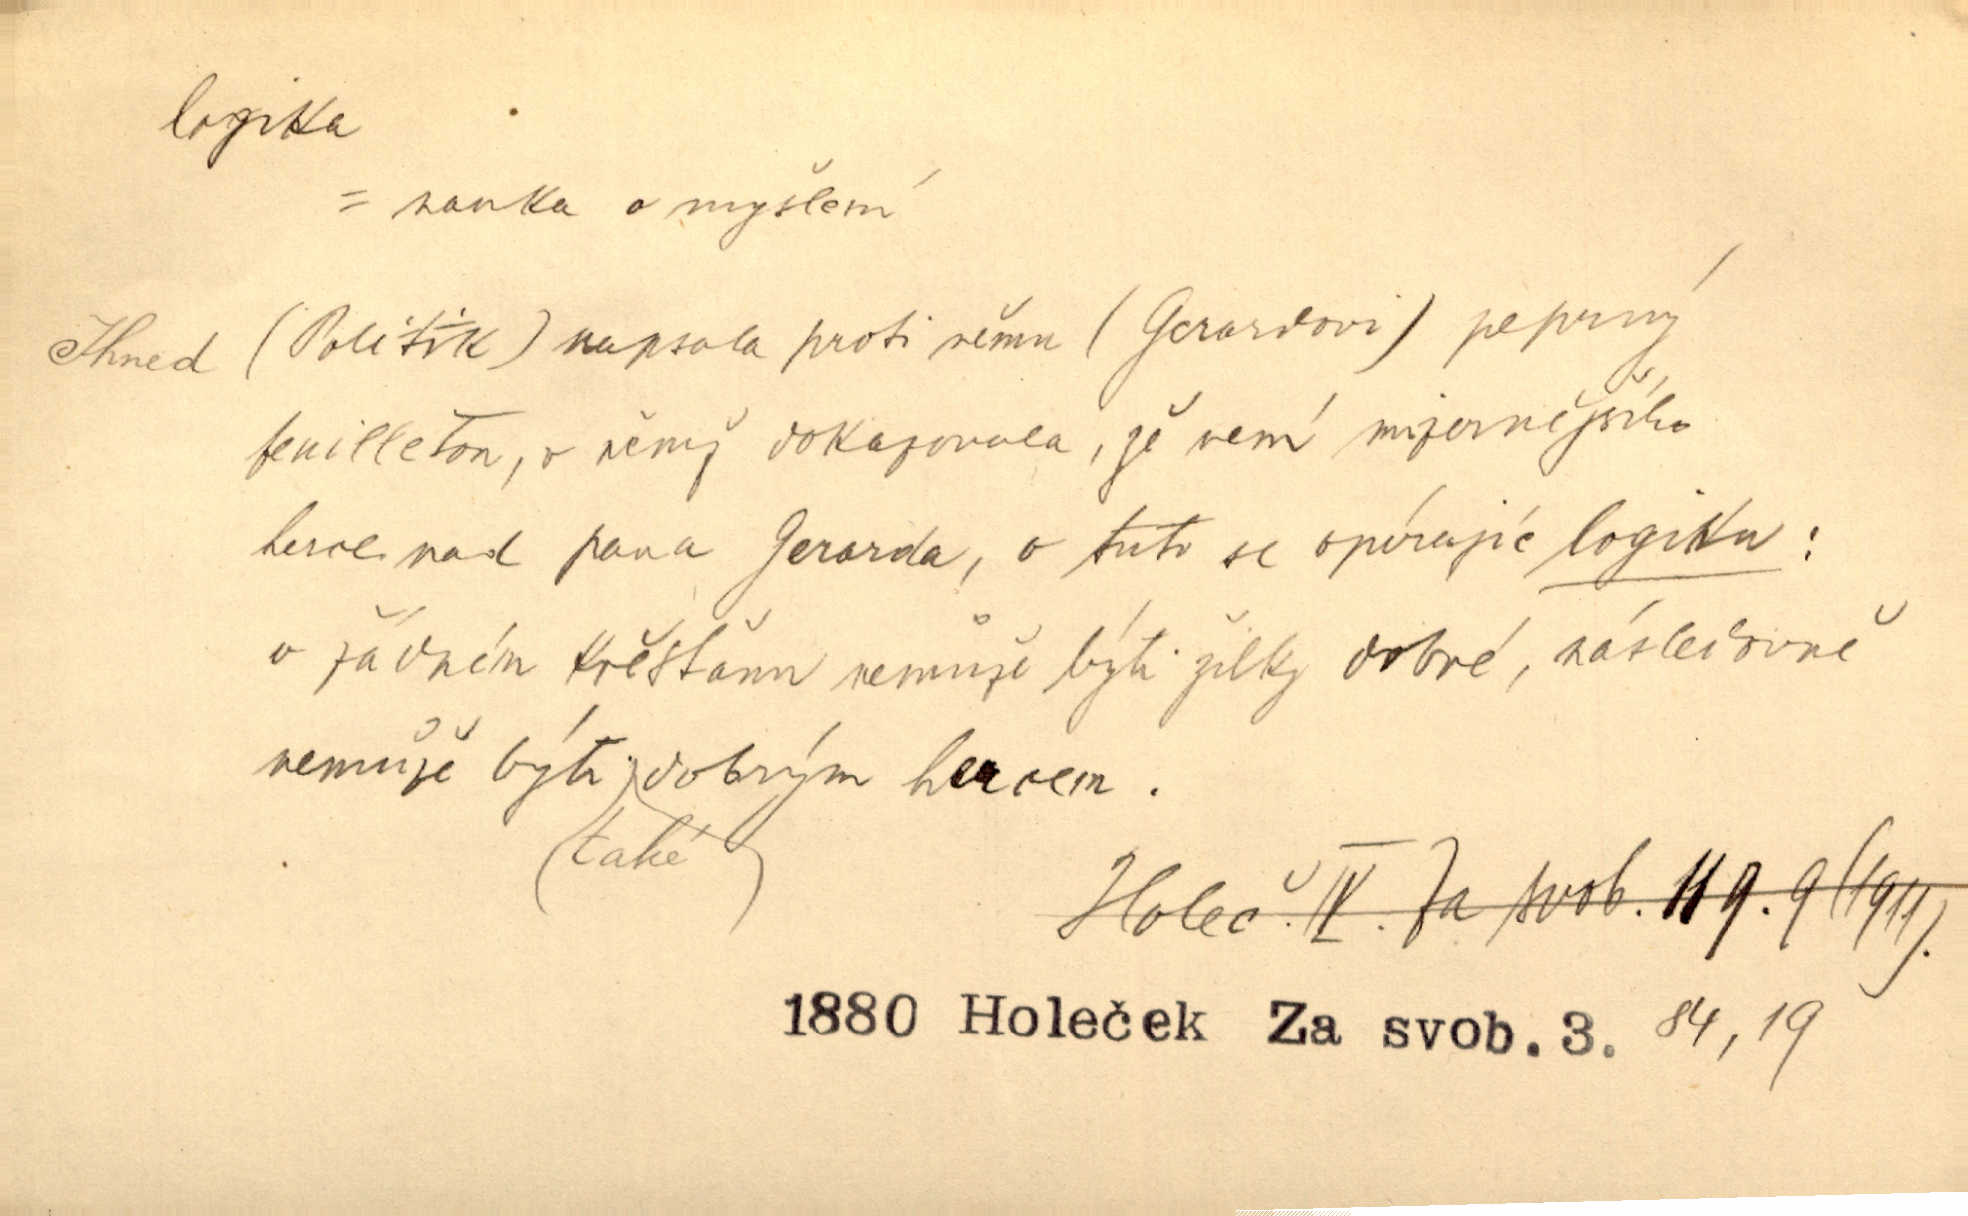 logika
= nauka o myšlení
Ihned (Politik) napsala proti němu (Gerardovi) peprný
feuilleton, v němž dokazovala, že není mizernějšího
herce nad pana Gerarda, o tuto se opírajíc logiku:
v žádném křešťanu nemůže býti žilky dobré, následovně
nemůže býti dobrým hercem.
(také)
Holeč. IV. Za svob. 119. 9 (1911).
1880 Holeček Za svob. 3. 84, 19